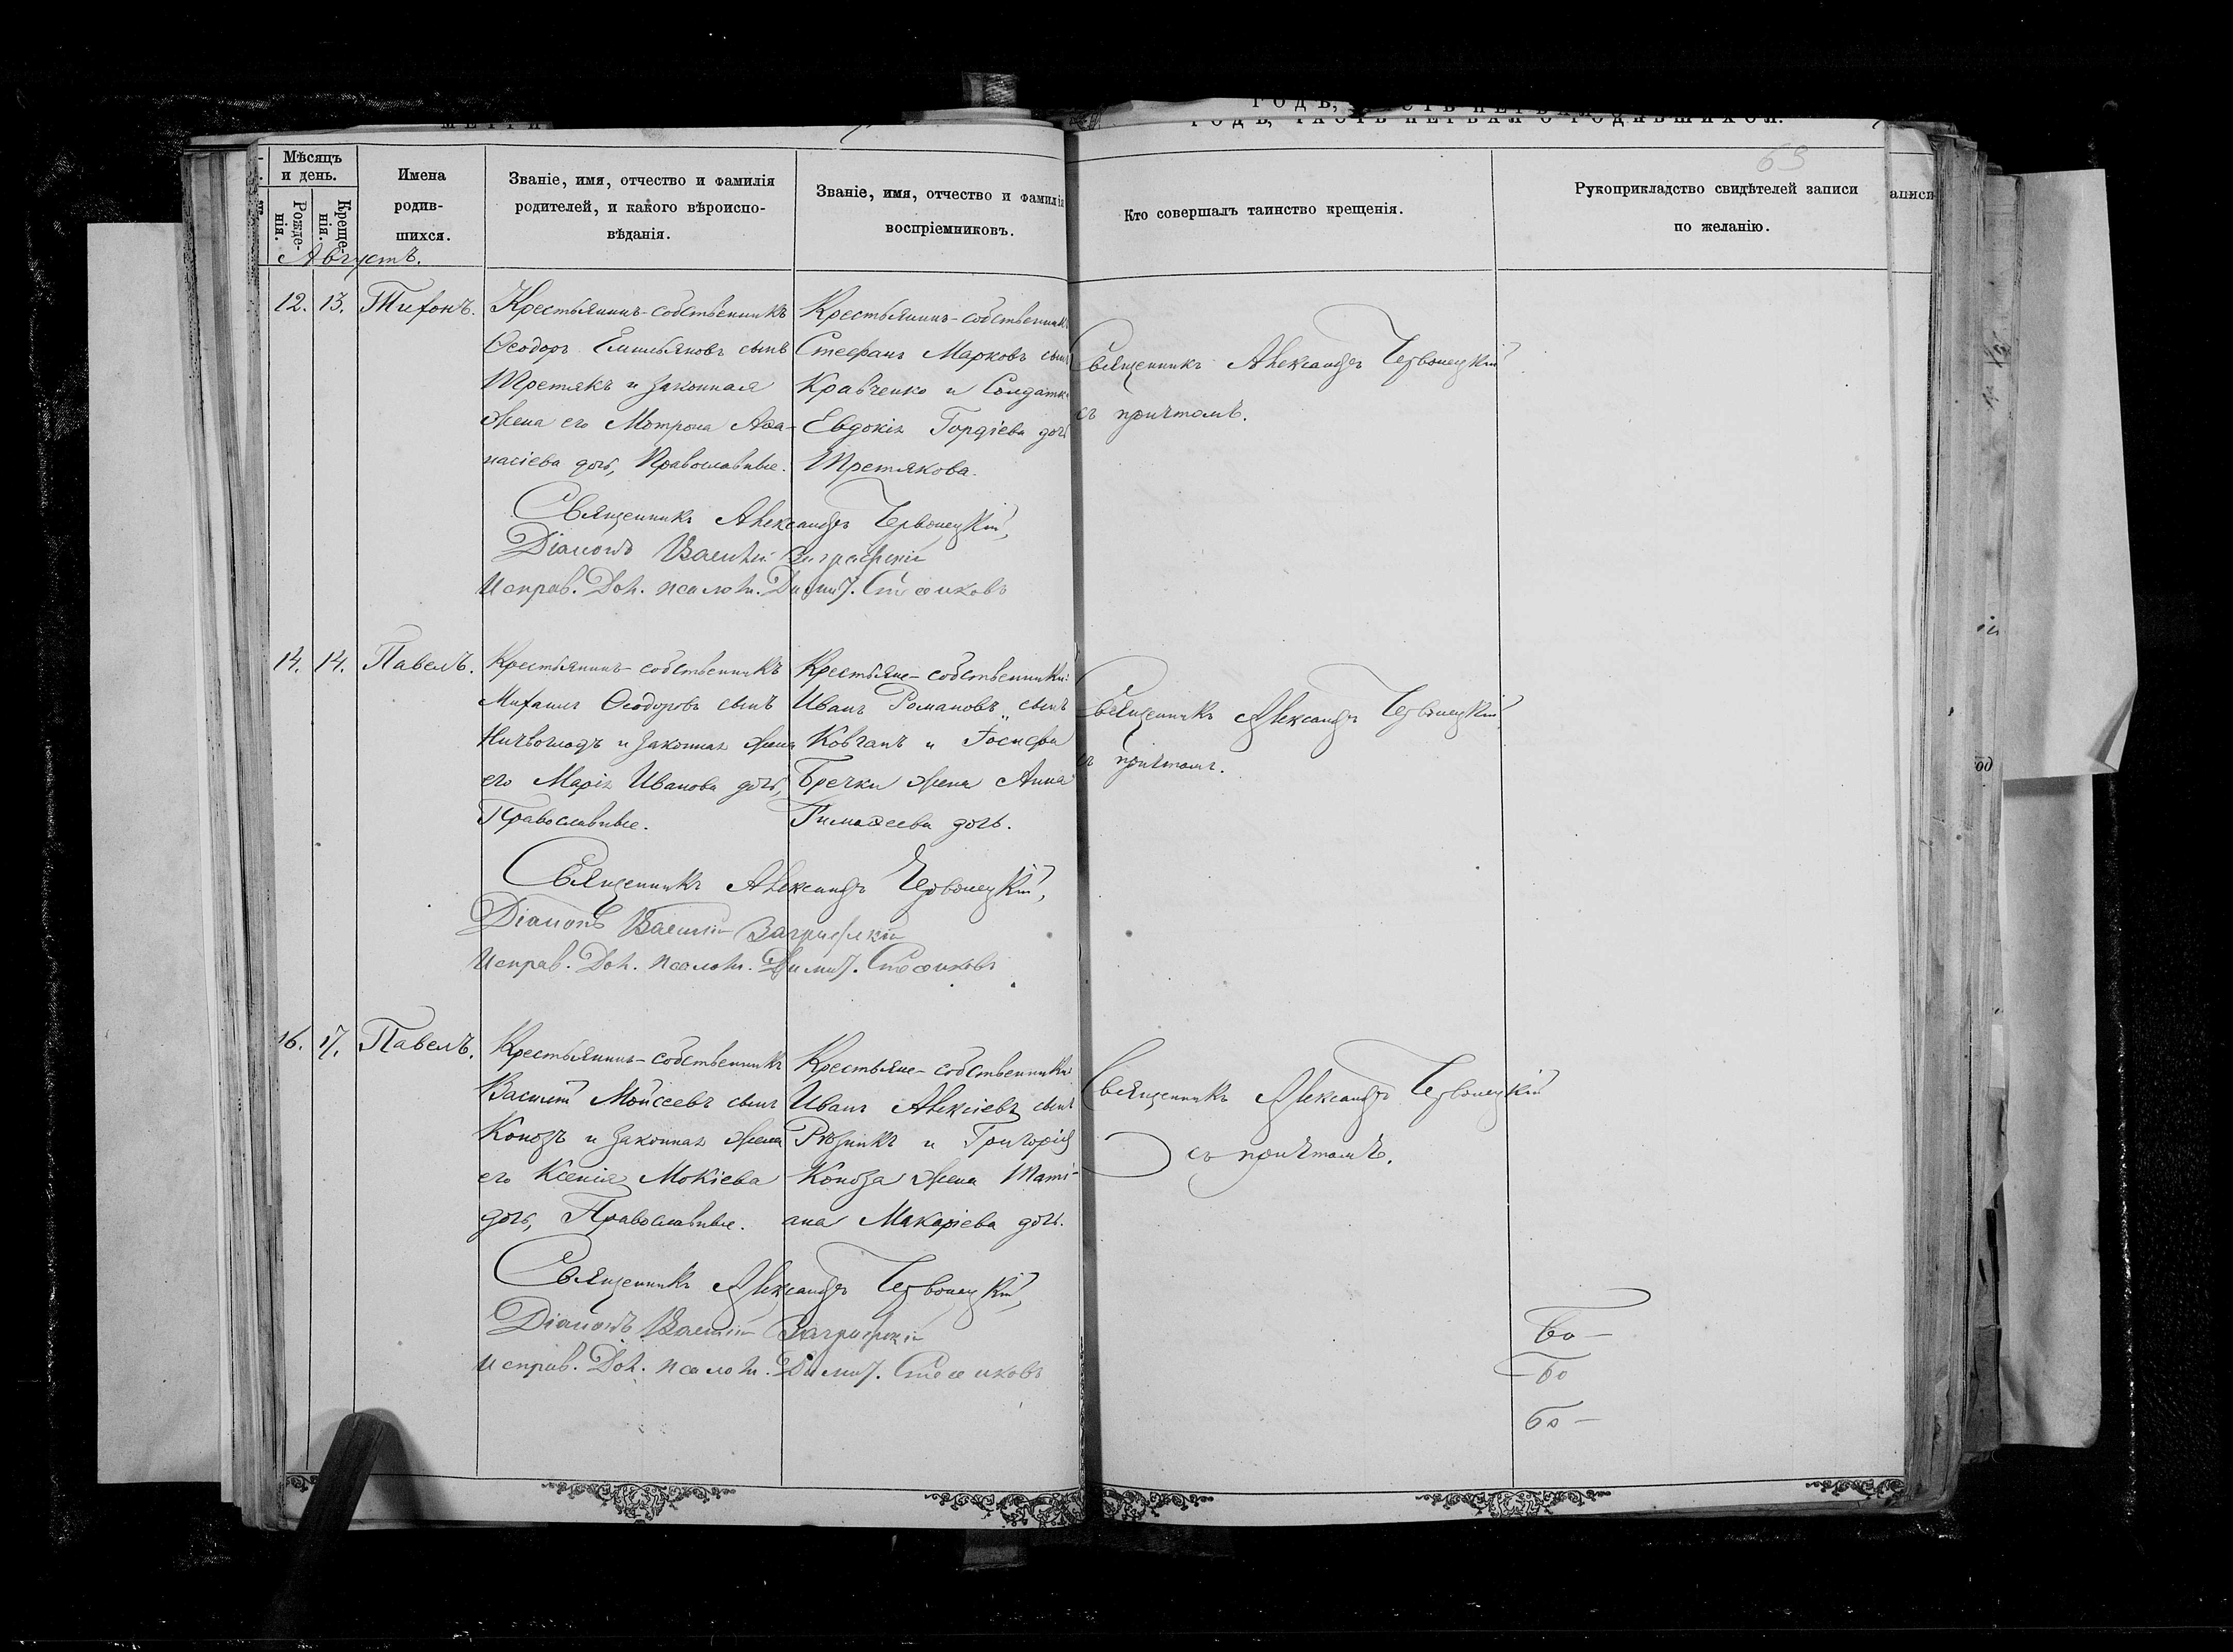 ГОДЪ, ЧАСТЬ ПЕРВАЯ О РОДИВШИХСЯ.
69
Мѣсяцъ и день.
Рожденія.
Крещенія.
Имена родившихся.
Званіе, имя, отчество и фамилія
родителей, и какого вѣроиспо-
вѣданія.
Званіе, имя, отчество и фамилія
воспріемниковъ.
Кто совершалъ таинство крещенія.
Рукоприкладство свидѣтелей записи
по желанію.
Августъ.
12. 13. Тихонъ.
Крестьянинъ-собственникъ
Ѳеодоръ Емильяновъ сынъ
Третякъ и законная
жена его Мотрона Аѳа-
насіева дочь, Православные.
Крестьянинъ-собственникъ
Стефанъ Марковъ сынъ
Кравченко и Солдатк
Евдокія Гордіева дочь
Третякова.
Священникъ Александръ Червонецкій
съ причтомъ.
Священникъ Александръ Червонецкій,
Діаконъ Василій
Исправ. Дол. псалом. Димит.
14. 14. Павелъ.
Крестьянинъ-собственникъ
Михаилъ Ѳеодоровъ сынъ
Ничволодъ и законная жена
его Марія Иванова дочь,
Православные.
Крестьяне-собственники:
Иванъ Романовъ сынъ
Ковганъ и Іосифа
Бречки жена Анна
Тимоѳеева дочь.
Священникъ Александръ Червонецкій
съ причтомъ.
Священникъ Александръ Червонецкій,
Діаконъ Василій
Исправ. Дол. псалом. Димит.
16. 17. Павелъ.
Крестьянинъ-собственникъ
Василій Мойсеевъ сынъ
Конозъ и законная жена
его Ксенія Мокіева
дочь, Православные.
Крестьяне-собственники:
Иванъ Алексіевъ сынъ
Рѣзникъ и Григорія
Коноза жена Таті-
ана Макаріева дочь.
Священникъ Александръ Червонецкій
съ причтомъ.
Священникъ Александръ Червонецкій,
Діаконъ Василій
Исправ. Дол. псалом. Димит.